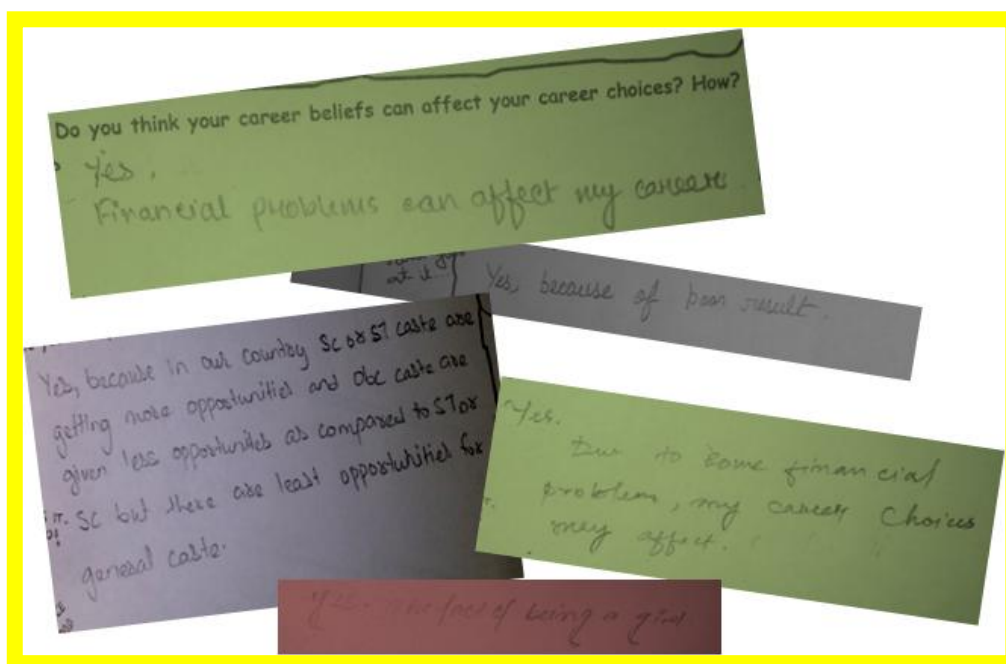 Do you think your career beliefs can affect your career choices? How?
Yes,
Financial problems can affect my career
at it...
Yes, because of poor result.
Yes, because in our country SC or ST caste are
getting more opportunities and Obc caste are
given less opportunities as compared to ST or
SC but there are least opportunities for
general caste.
Yes.
Due to some financial
problem, my career Choices
may affect.
Yes. The fact of being a girl